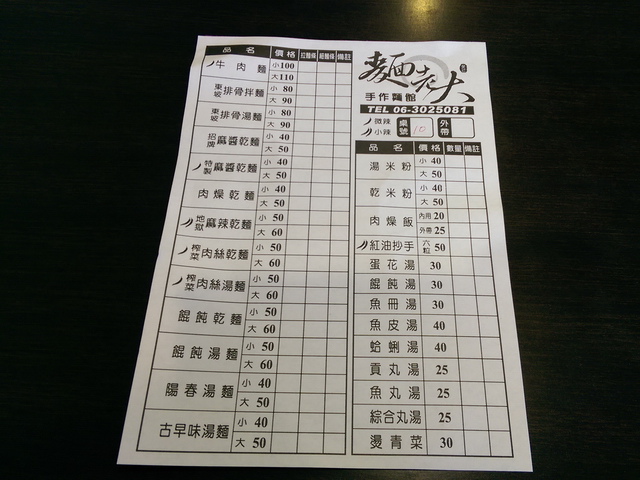 品名 價格 拉麵條 細麵條 備註
牛肉麵 小100
大110
東坡排骨拌麵 小 80
大 90
東坡排骨湯麵 小 80
大 90
招牌麻醬乾麵 小 40
大 50
特製麻醬乾麵 小 40
大 50
肉燥乾麵 小 40
大 50
地獄麻辣乾麵 小 50
大 60
榨菜肉絲乾麵 小 50
大 60
榨菜肉絲湯麵 小 50
大 60
餛飩乾麵 小 50
大 60
餛飩湯麵 小 50
大 60
陽春湯麵 小 40
大 50
古早味湯麵 小 40
大 50
麵老大
手作麵館
TEL 06-3025081
微辣
小辣
桌號 10 外帶
品名 價格 數量 備註
湯米粉 小 40
大 50
乾米粉 小 40
大 50
肉燥飯 內用 20
外帶 25
紅油抄手 六粒 50
蛋花湯 30
餛飩湯 30
魚冊湯 30
魚皮湯 40
蛤蜊湯 40
貢丸湯 25
魚丸湯 25
綜合丸湯 25
燙青菜 30